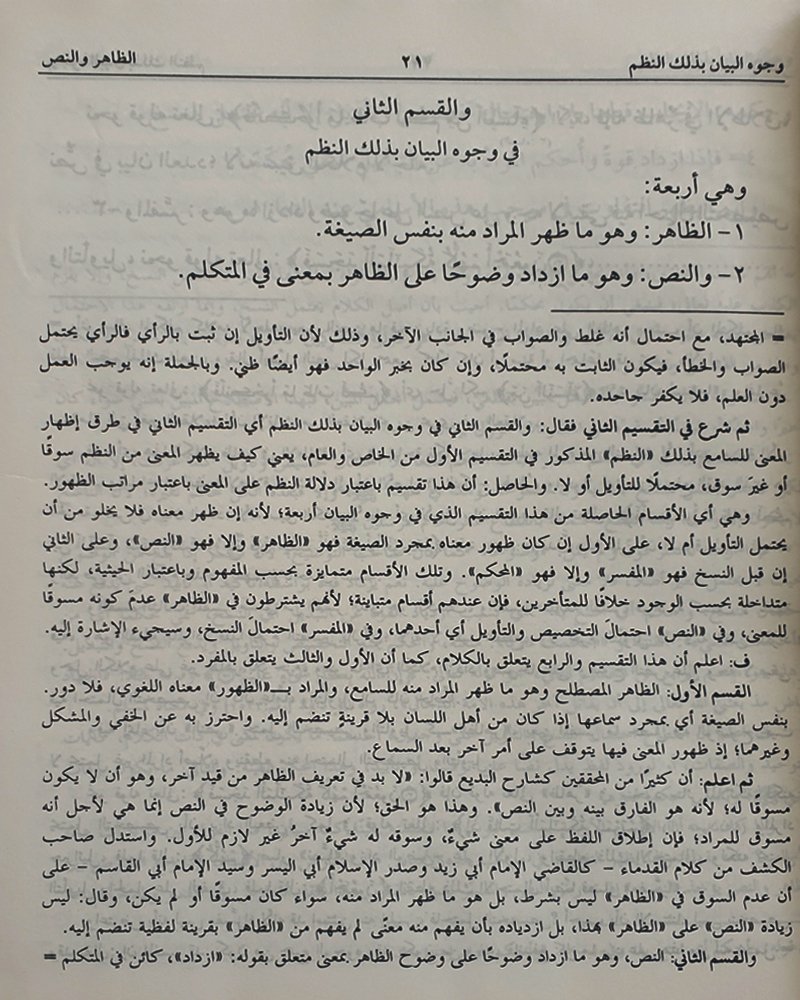 وجوه البيان بذلك النظم ٢١ الظاهر والنص
والقسم الثاني
في وجوه البيان بذلك النظم
وهي أربعة:
١- الظاهر: وهو ما ظهر المراد منه بنفس الصيغة.
٢- والنص: وهو ما ازداد وضوحًا على الظاهر بمعنى في المتكلم.
= المجتهد، مع احتمال أنه غلط والصواب في الجانب الآخر، وذلك لأن التأويل إن ثبت بالرأي فالرأي يحتمل
الصواب والخطأ، فيكون الثابت به محتملًا، وإن كان بخبر الواحد فهو أيضًا ظني. وبالجملة إنه يوجب العمل
دون العلم، فلا يكفر جاحده.
ثم شرع في التقسيم الثاني فقال: والقسم الثاني في وجوه البيان بذلك النظم أي التقسيم الثاني في طرق إظهار
المعنى للسامع بذلك «النظم» المذكور في التقسيم الأول من الخاص والعام، يعني كيف يظهر المعنى من النظم سوقًا
أو غيرَ سوق، محتملًا للتأويل أو لا. والحاصل: أن هذا تقسيم باعتبار دلالة النظم على المعنى باعتبار مراتب الظهور.
وهي أي الأقسام الحاصلة من هذا التقسيم الذي في وجوه البيان أربعة؛ لأنه إن ظهر معناه فلا يخلو من أن
يحتمل التأويل أم لا، على الأول إن كان ظهور معناه بمجرد الصيغة فهو «الظاهر» وإلا فهو «النص»، وعلى الثاني
إن قبل النسخ فهو «المفسر» وإلا فهو «المحكم». وتلك الأقسام متمايزة بحسب المفهوم وباعتبار الحيثية، لكنها
متداخلة بحسب الوجود خلافًا للمتأخرين، فإن عندهم أقسام متباينة؛ لأنهم يشترطون في «الظاهر» عدمَ كونه مسوقًا
للمعنى، وفي «النص» احتمالَ التخصيص والتأويل أي أحدهما، وفي «المفسر» احتمالَ النسخ، وسيجيء الإشارة إليه.
ف: اعلم أن هذا التقسيم والرابع يتعلق بالكلام، كما أن الأول والثالث يتعلق بالمفرد.
القسم الأول: الظاهر المصطلح وهو ما ظهر المراد منه للسامع، والمراد بـ«الظهور» معناه اللغوي، فلا دور.
بنفس الصيغة أي بمجرد سماعها إذا كان من أهل اللسان بلا قرينةٍ تنضم إليه. واحترز به عن الخفي والمشكل
وغيرهما؛ إذ ظهور المعنى فيها يتوقف على أمر آخر بعد السماع.
ثم اعلم: أن كثيرًا من المحققين كشارح البديع قالوا: «لا بد في تعريف الظاهر من قيد آخر، وهو أن لا يكون
مسوقًا له؛ لأنه هو الفارق بينه وبين النص». وهذا هو الحق؛ لأن زيادة الوضوح في النص إنما هي لأجل أنه
مسوق للمراد؛ فإن إطلاق اللفظ على معنى شيءٌ، وسوقه له شيءٌ آخرُ غير لازم للأول. واستدل صاحب
الكشف من كلام القدماء - كالقاضي الإمام أبي زيد وصدر الإسلام أبي اليسر وسيد الإمام أبي القاسم - على
أن عدم السوق في «الظاهر» ليس بشرط، بل هو ما ظهر المراد منه، سواء كان مسوقًا أو لم يكن، وقال: ليس
زيادة «النص» على «الظاهر» بهذا، بل ازدياده بأن يفهم منه معنًى لم يفهم من «الظاهر» بقرينة لفظية تنضم إليه.
والقسم الثاني: النص، وهو ما ازداد وضوحًا على وضوح الظاهر بمعنى متعلق بقوله: «ازداد»، كائن في المتكلم =